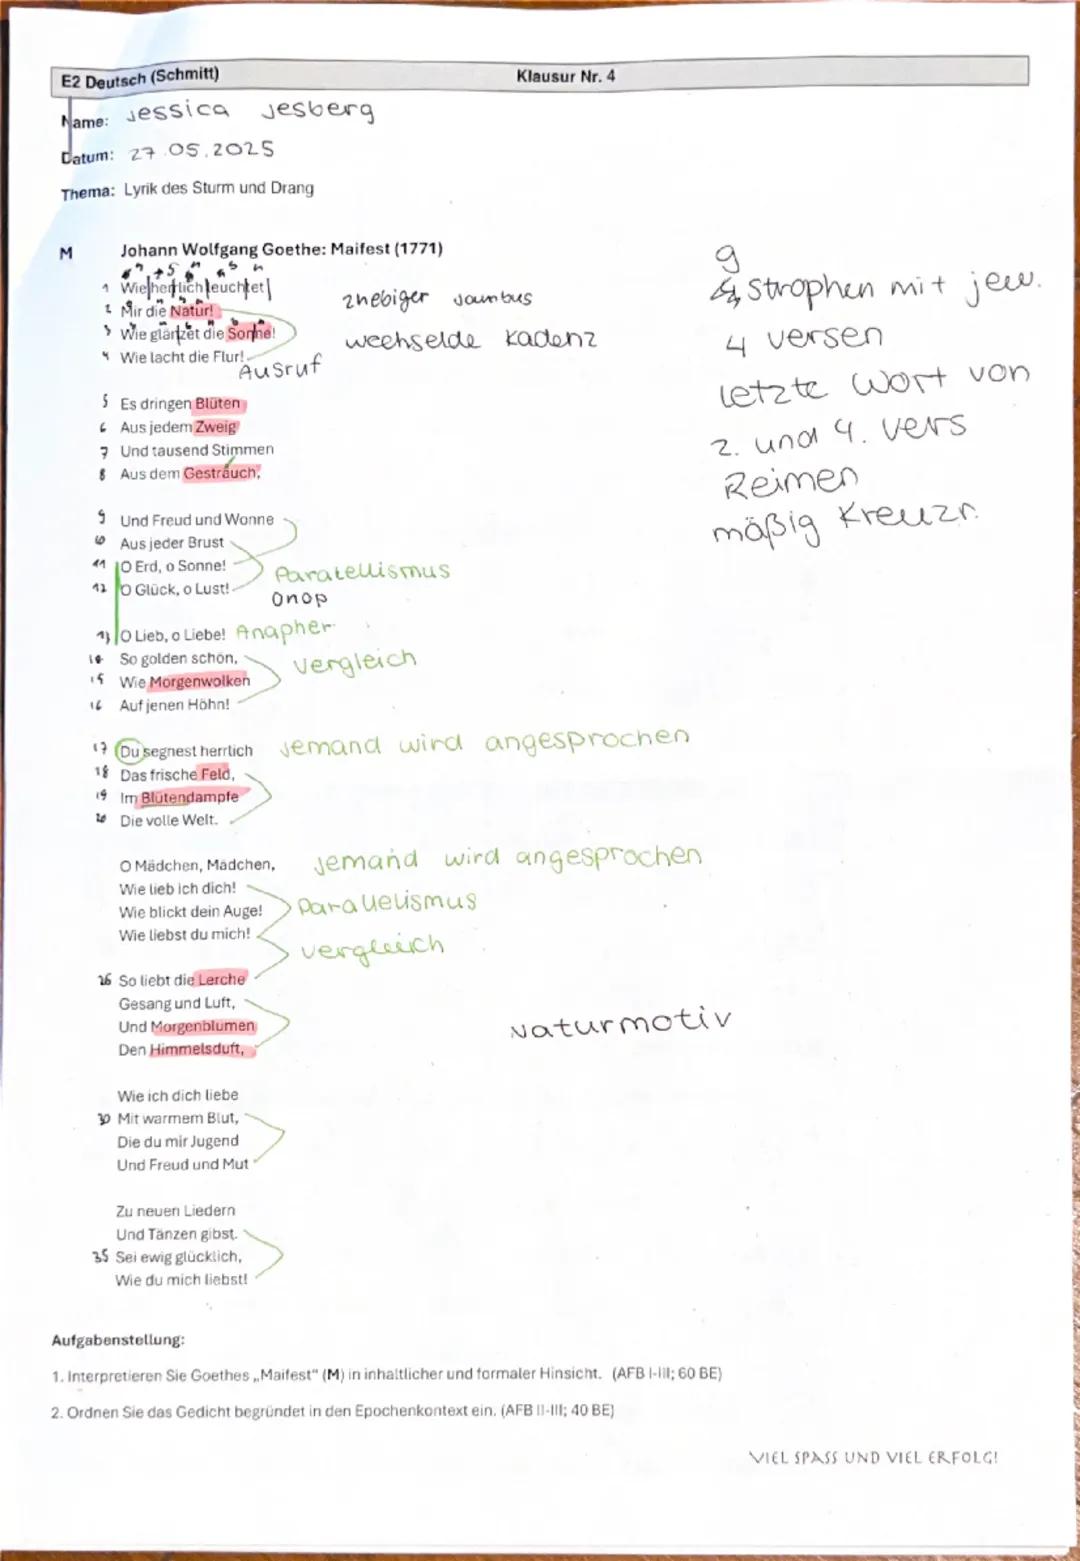 E2 Deutsch (Schmitt) Klausur Nr. 4
Name: Jessica Jesberg
Datum: 27.05.2025
Thema: Lyrik des Sturm und Drang
M Johann Wolfgang Goethe: Maifest (1771)
1 Wie herrlich leuchtet
2 Mir die Natur!
3 Wie glänzet die Sonne!
4 Wie lacht die Flur!
2hebiger Jambus
wechselde Kadenz
Ausruf
9
4 Strophen mit jew.
4 Versen
letzte Wort von
2. und 4. Vers
Reimen
mäßig Kreuzr.
5 Es dringen Blüten
6 Aus jedem Zweig
7 Und tausend Stimmen
8 Aus dem Gesträuch,
9 Und Freud und Wonne
10 Aus jeder Brust
11 O Erd, o Sonne!
12 O Glück, o Lust!
Paralellismus
Onop
13 O Lieb, o Liebe! Anapher
14 So golden schön,
15 Wie Morgenwolken
16 Auf jenen Höhn!
Vergleich
17 Du segnest herrlich Jemand wird angesprochen
18 Das frische Feld,
19 Im Blütendampfe
20 Die volle Welt.
O Mädchen, Mädchen, Jemand wird angesprochen
Wie lieb ich dich!
Wie blickt dein Auge! Parallelismus
Wie liebst du mich!
Vergleich
26 So liebt die Lerche
Gesang und Luft,
Und Morgenblumen
Den Himmelsduft,
Naturmotiv
Wie ich dich liebe
30 Mit warmem Blut,
Die du mir Jugend
Und Freud und Mut
Zu neuen Liedern
Und Tänzen gibst.
35 Sei ewig glücklich,
Wie du mich liebst!
Aufgabenstellung:
1. Interpretieren Sie Goethes „Maifest" (M) in inhaltlicher und formaler Hinsicht. (AFB I-III; 60 BE)
2. Ordnen Sie das Gedicht begründet in den Epochenkontext ein. (AFB II-III; 40 BE)
VIEL SPASS UND VIEL ERFOLG!